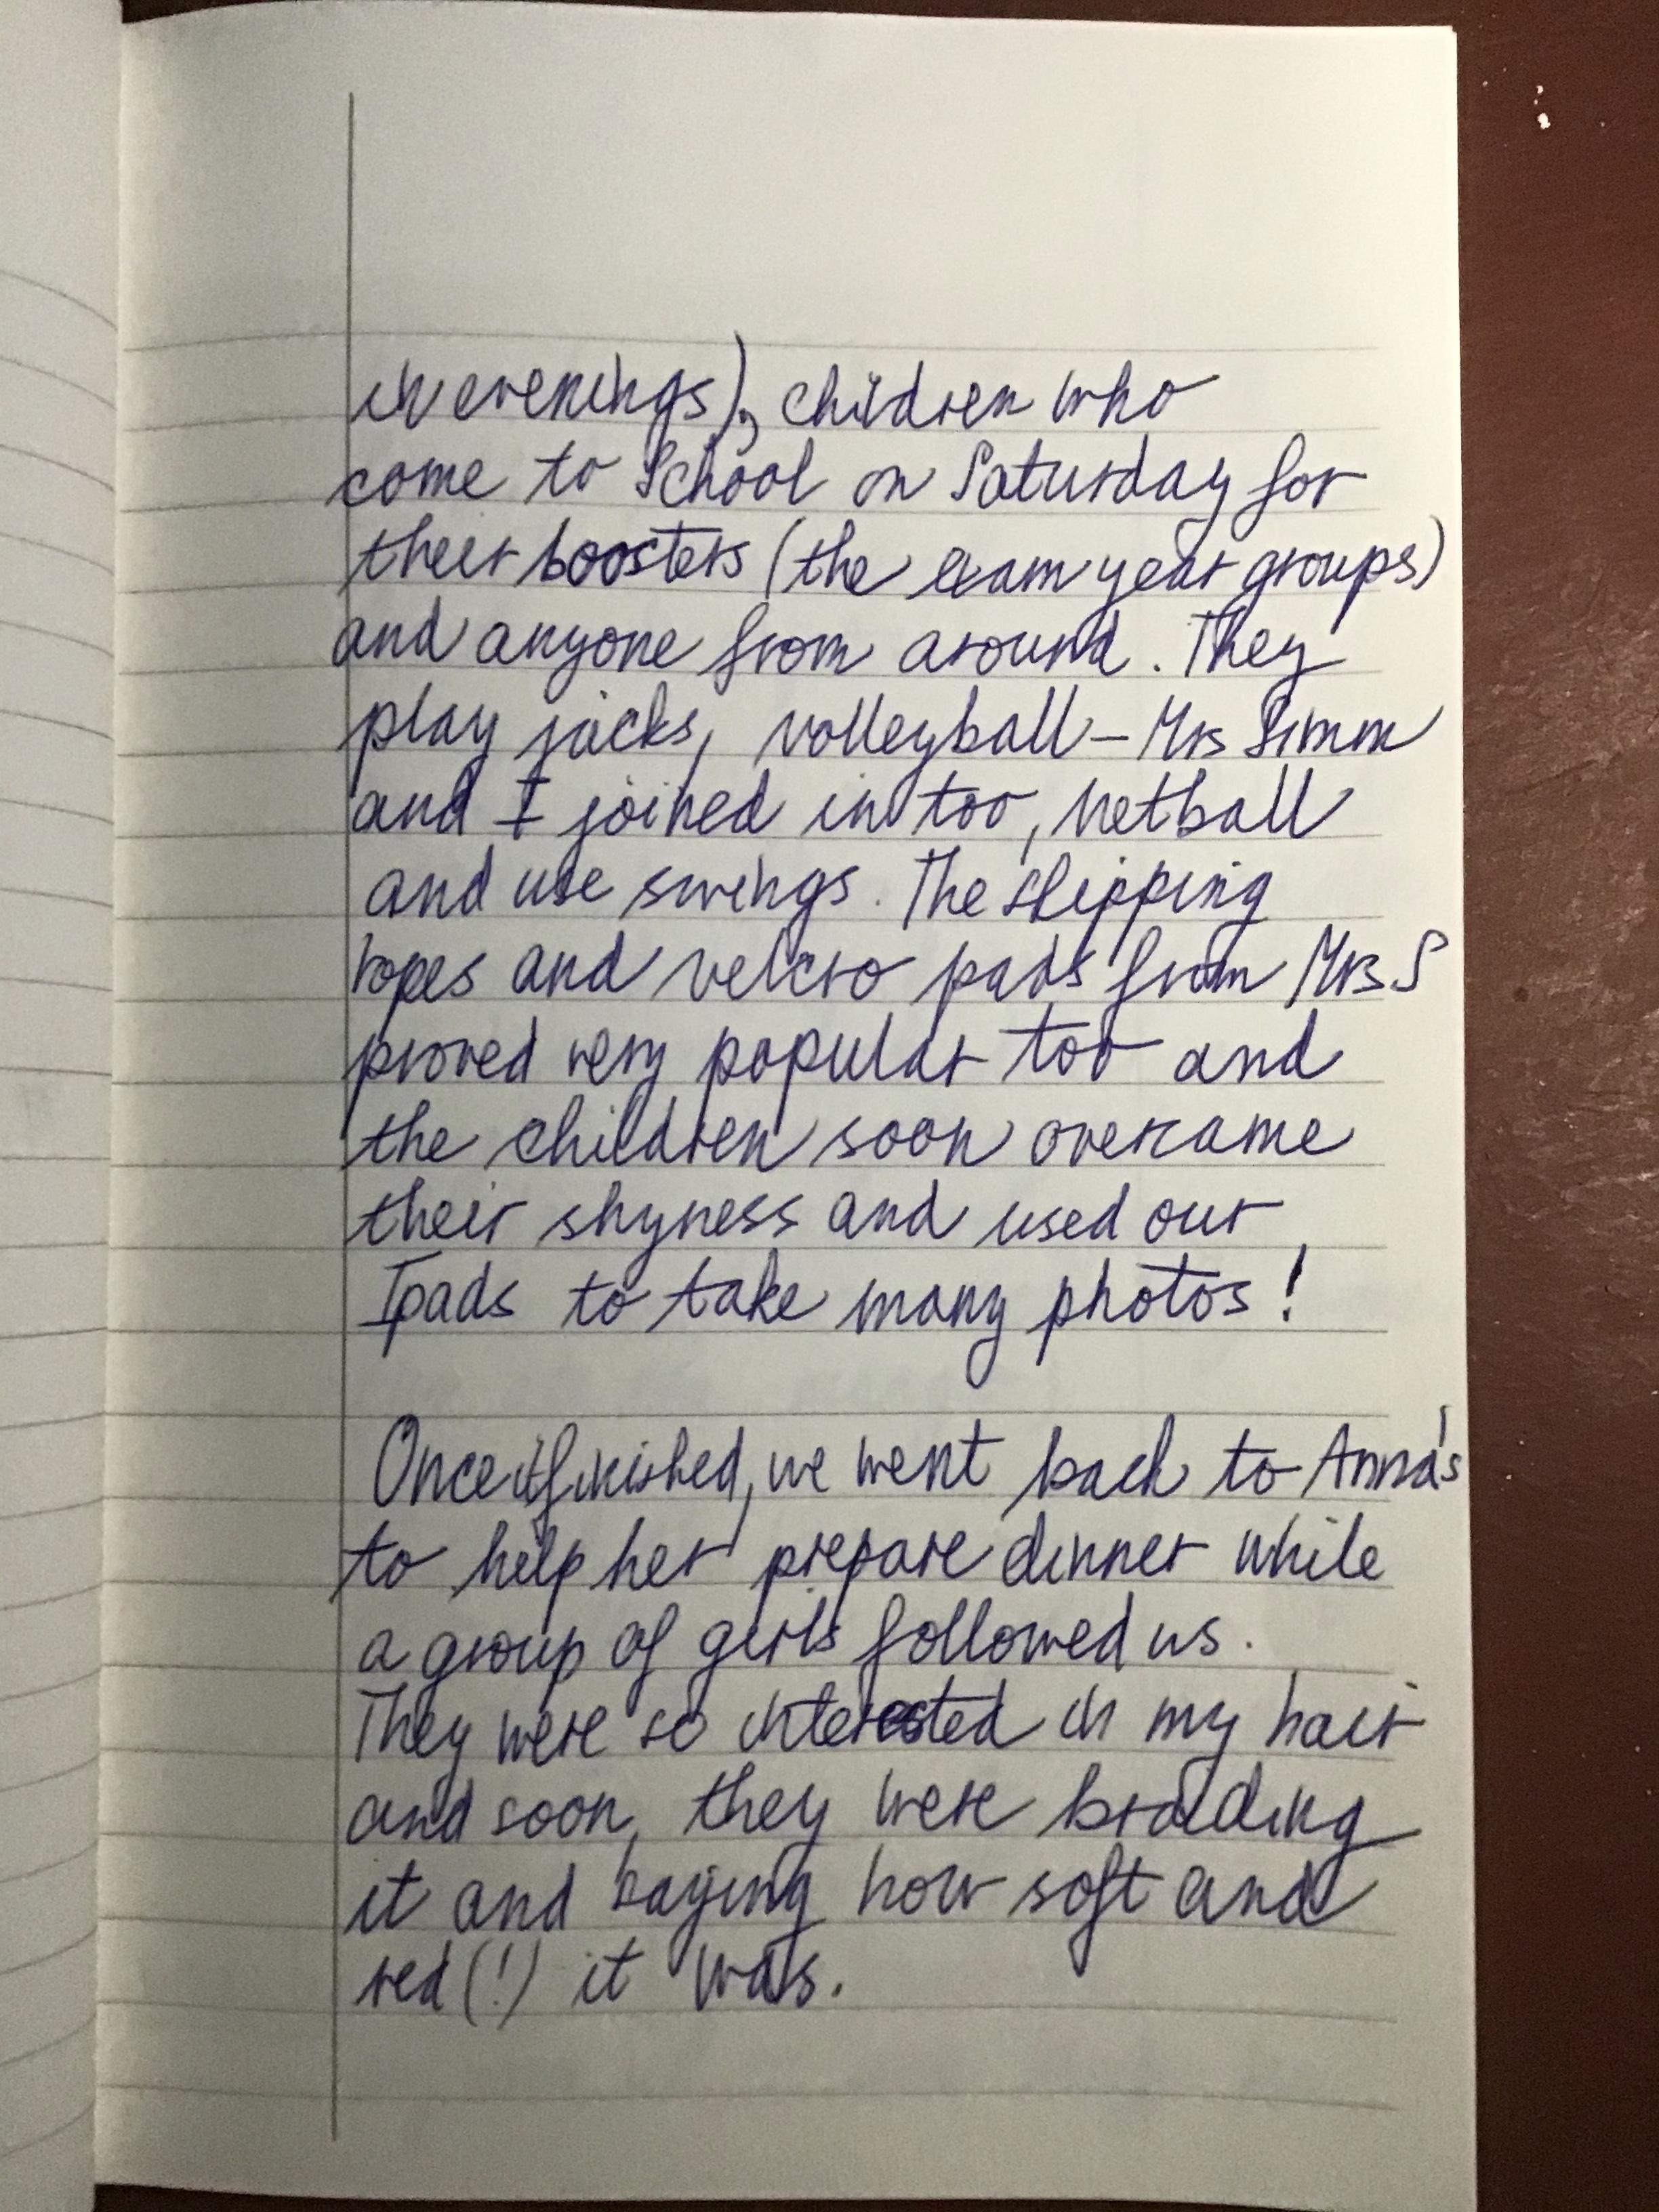 in evenings), children who
come to School on Saturday for
their boosters (the exam year groups)
and anyone from around. They
play jacks, volleyball – Mrs Simm
and I joined in too, netball
and use swings. The skipping
ropes and velcro pads from Mrs S
proved very popular too and
the children soon overcame
their shyness and used our
Ipads to take many photos!
Once it finished, we went back to Anna's
to help her prepare dinner while
a group of girls followed us.
They were so interested in my hair
and soon, they were braiding
it and saying how soft and
red (!) it was.